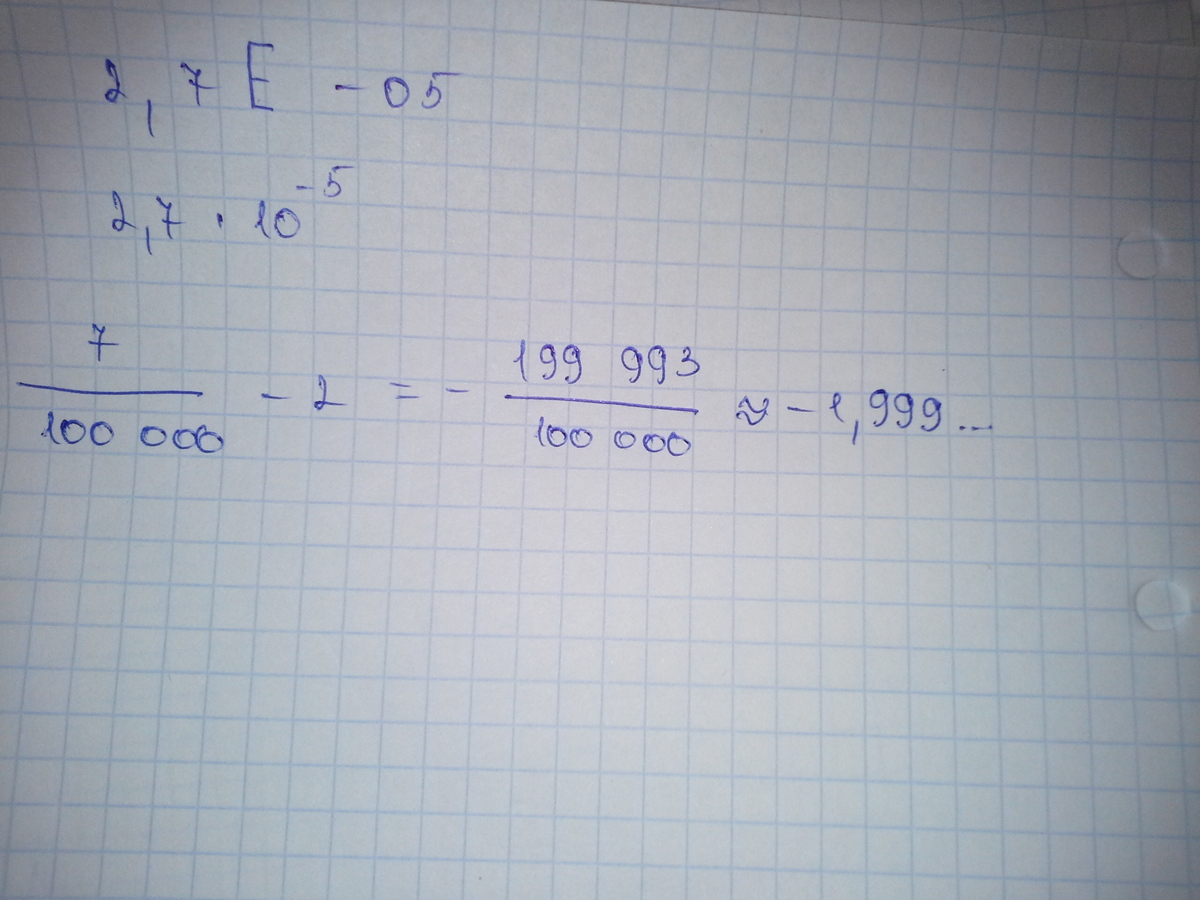 2,7 E - 05
2,7 · 10^-5
7/100 000 - 2 = - 199 993/100 000 ≈ - 1,999...